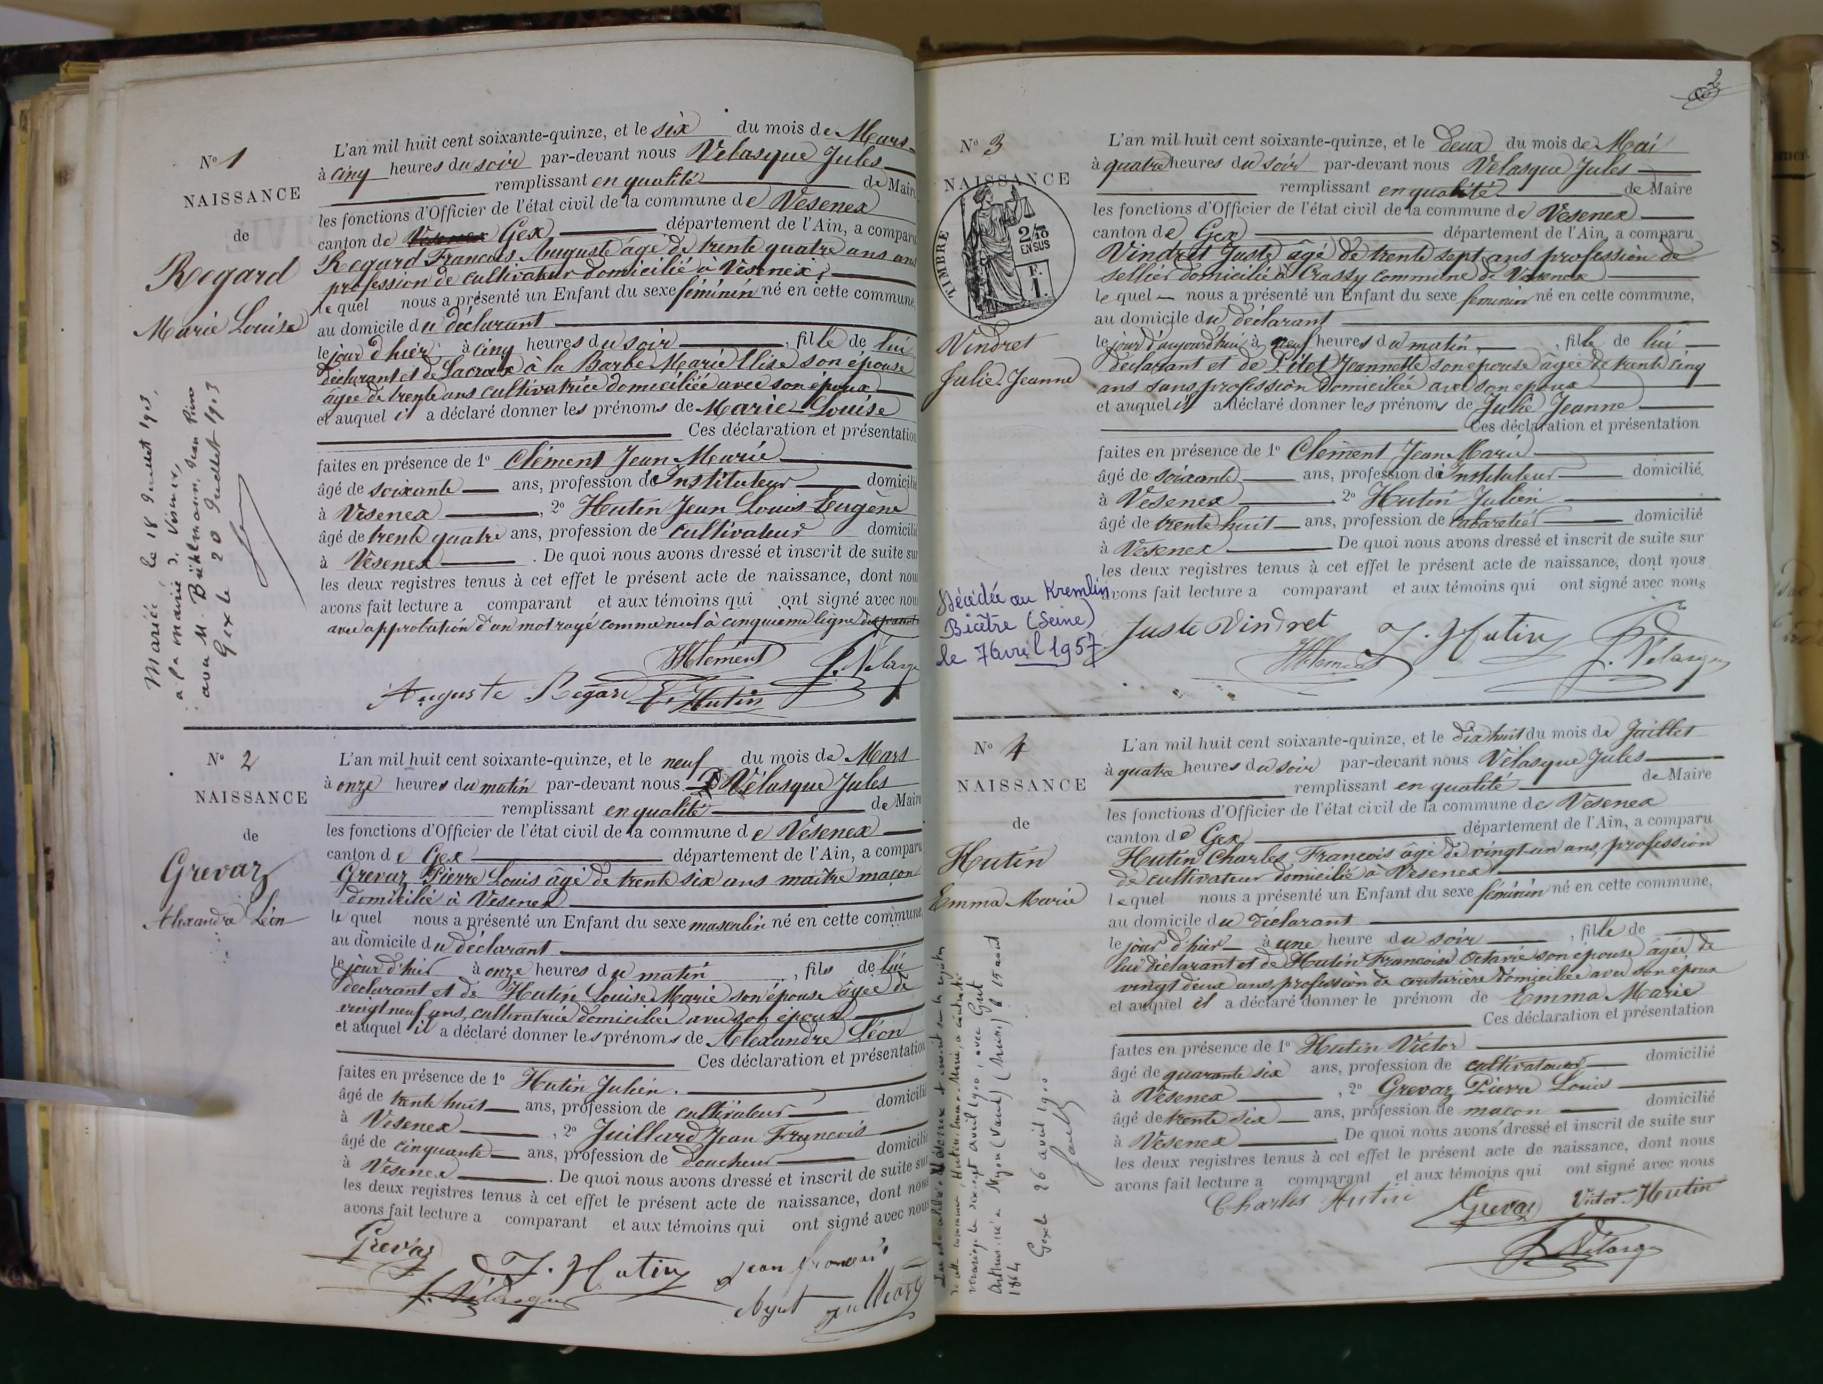 N° 1
NAISSANCE
de
Regard
Marie Louise
L'an mil huit cent soixante-quinze, et le six du mois de Mars
à cinq heures du soir par-devant nous Vélasque Jules
remplissant en qualité de Maire
les fonctions d'Officier de l'état civil de la commune de Vésenex
canton de Vesenex Gex département de l'Ain, a comparu
Regard François Auguste âgé de trente quatre ans
profession de cultivateur domicilié à Vésenex
le quel nous a présenté un Enfant du sexe féminin né en cette commune,
au domicile du déclarant
le jour d'hier à cinq heures du soir, fille de lui
déclarant et de Lacroix à la Barbe Marie Elise son épouse
âgée de trente ans cultivatrice domiciliée avec son époux
et auquel il a déclaré donner les prénoms de Marie-Louise
Ces déclaration et présentation
faites en présence de 1° Clément Jean Marie
âgé de soixante ans, profession d'Instituteur domicilié
à Vésenex, 2° Hutin Jean Louis Eugène
âgé de trente quatre ans, profession de cultivateur domicilié
à Vésenex. De quoi nous avons dressé et inscrit de suite sur
les deux registres tenus à cet effet le présent acte de naissance, dont nous
avons fait lecture a comparant et aux témoins qui ont signé avec nous
avec approbation d'un mot rayé comme nul à cinquième ligne
JMClément J. Vélasque
Auguste Regard E. Hutin
Mariée le 18 Juillet 1903,
à la mairie d. Vésenex,
avec M. Bühlmann, Jean
Gex le 20 Juillet 1903
N° 2
NAISSANCE
de
Grevaz
Alexandre Léon
L'an mil huit cent soixante-quinze, et le neuf du mois de Mars
à onze heures du matin par-devant nous Vélasque Jules
remplissant en qualité de Maire
les fonctions d'Officier de l'état civil de la commune de Vésenex
canton de Gex département de l'Ain, a comparu
Grevaz Pierre Louis âgé de trente six ans maître maçon
domicilié à Vésenex
le quel nous a présenté un Enfant du sexe masculin né en cette commune,
au domicile du déclarant
le jour d'hier à onze heures du matin, fils de lui
déclarant et de Hutin Louise Marie son épouse âgée de
vingt neuf ans, cultivatrice domiciliée avec son époux
et auquel il a déclaré donner les prénoms de Alexandre Léon
Ces déclaration et présentation
faites en présence de 1° Hutin Julien
âgé de trente huit ans, profession de cultivateur domicilié
à Vésenex, 2° Juillard Jean François
âgé de cinquante ans, profession de domicilié
à Vésenex. De quoi nous avons dressé et inscrit de suite sur
les deux registres tenus à cet effet le présent acte de naissance, dont nous
avons fait lecture a comparant et aux témoins qui ont signé avec nous
Grevaz J. Hutin Jean françois
J. Vélasque
N° 3
NAISSANCE
TIMBRE
2/10
EN SUS
F.
1.
Vindret
Julie Jeanne
2
L'an mil huit cent soixante-quinze, et le deux du mois de Mai
à quatre heures du soir par-devant nous Vélasque Jules
remplissant en qualité de Maire
les fonctions d'Officier de l'état civil de la commune de Vésenex
canton de Gex département de l'Ain, a comparu
Vindret Juste âgé de trente sept ans profession de
sellier domicilié à Crassy commune de Vésenex
le quel nous a présenté un Enfant du sexe féminin né en cette commune,
au domicile du déclarant
le jour d'aujourd'hui à neuf heures du matin, fille de lui
déclarant et de Jeannette son épouse âgée de trente cinq
ans sans profession domiciliée avec son époux
et auquel il a déclaré donner les prénoms de Julie Jeanne
Ces déclaration et présentation
faites en présence de 1° Clément Jean Marie
âgé de soixante ans, profession d'Instituteur domicilié
à Vésenex 2° Hutin Julien
âgé de trente huit ans, profession de cabaretier domicilié
à Vésenex De quoi nous avons dressé et inscrit de suite sur
les deux registres tenus à cet effet le présent acte de naissance, dont nous
avons fait lecture a comparant et aux témoins qui ont signé avec nous
Juste Vindret J. Hutin
JMClément J. Vélasque
Décédée au Kremlin
Bicêtre (Seine)
le 7 Avril 1957
N° 4
NAISSANCE
de
Hutin
Emma Marie
L'an mil huit cent soixante-quinze, et le dix huit du mois de Juillet
à quatre heures du soir par-devant nous Vélasque Jules
remplissant en qualité de Maire
les fonctions d'Officier de l'état civil de la commune de Vésenex
canton de Gex département de l'Ain, a comparu
Hutin Charles François âgé de vingt un ans, profession
de cultivateur domicilié à Vésenex
le quel nous a présenté un Enfant du sexe féminin né en cette commune,
au domicile du déclarant
le jour d'hier à une heure du soir, fille de
lui déclarant et de Hutin Françoise Octavie son épouse âgée de
vingt deux ans, profession de couturière domiciliée avec son époux
et auquel il a déclaré donner le prénom de Emma Marie
Ces déclaration et présentation
faites en présence de 1° Hutin Victor
âgé de quarante six ans, profession de cultivateur domicilié
à Vésenex, 2° Grevaz Pierre Louis
âgé de trente six ans, profession de maçon domicilié
à Vésenex De quoi nous avons dressé et inscrit de suite sur
les deux registres tenus à cet effet le présent acte de naissance, dont nous
avons fait lecture a comparant et aux témoins qui ont signé avec nous
Charles Hutin Grevaz Victor Hutin
J. Vélasque
mariage le vingt avril 1900, avec
né à Nyon (Vaud) (Suisse) le 15 août
1864
Gex le 26 avril 1900